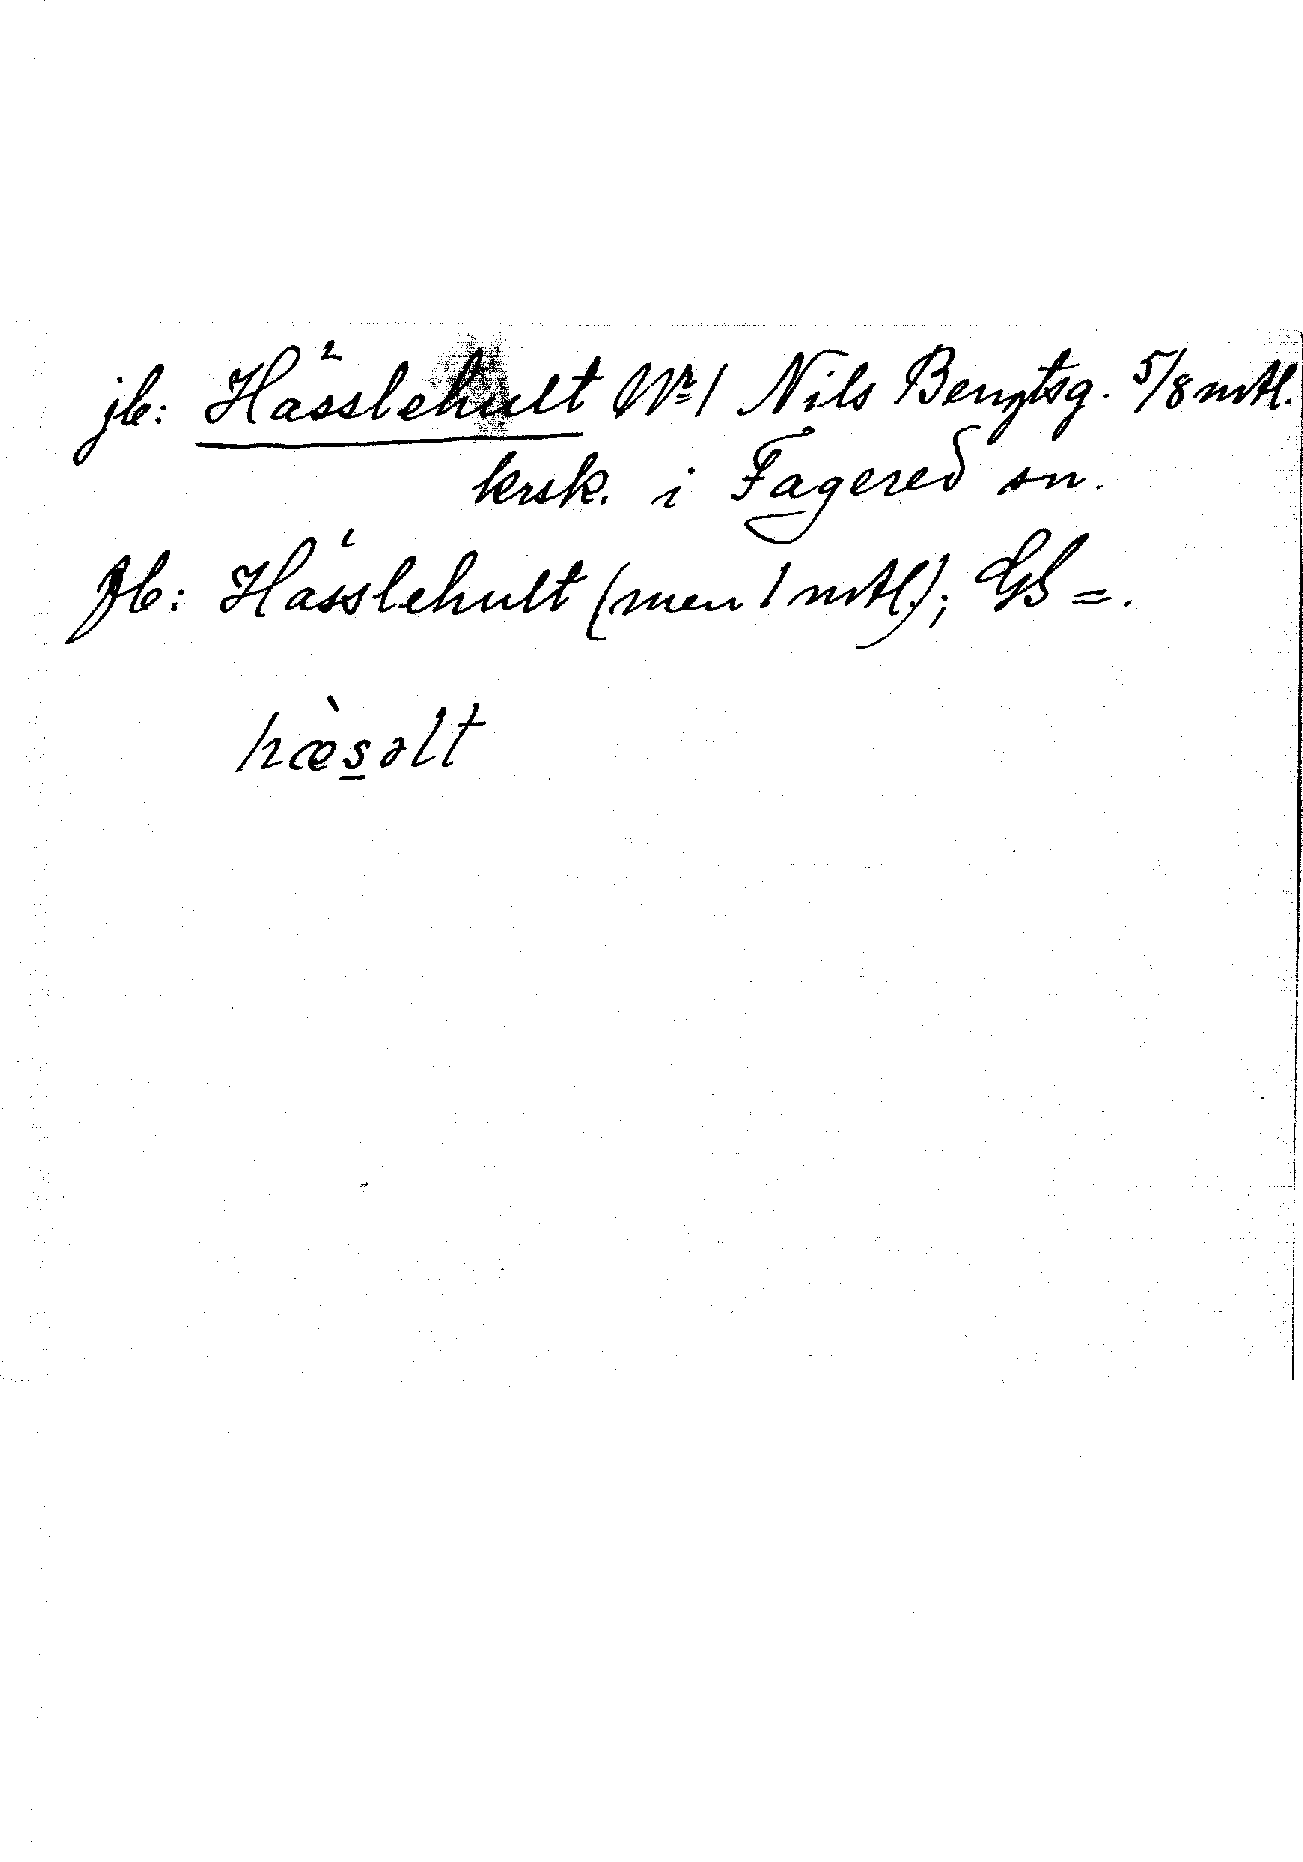 jb: Hässlehult Nr 1 Nils Bengtsg. 5/8 mtl.
krsk. i Fagered sn.
fb: Hässlehult (men 1 mtl.); GS =.
hæ̀s̲əlt